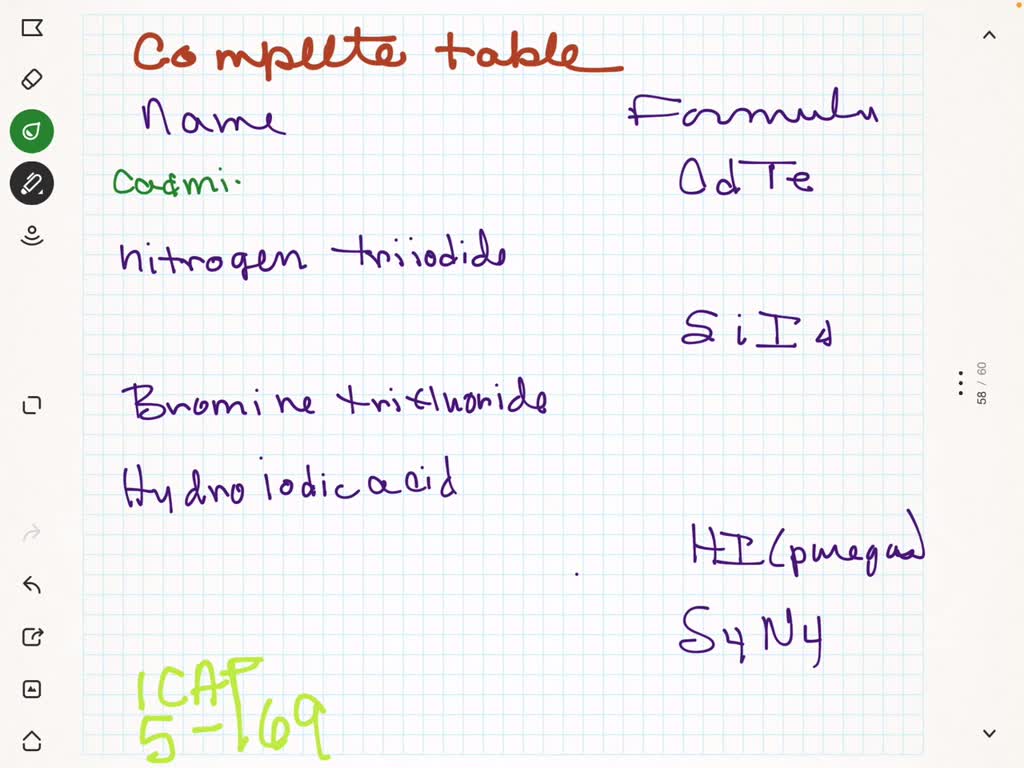 Complete table
Name Formula
Cadmi. CdTe
nitrogen triiodide
SiI4
Bromine trifluoride
Hydroiodic acid
HI (pure gas)
S4N4
ICAP
5-169
58 / 60